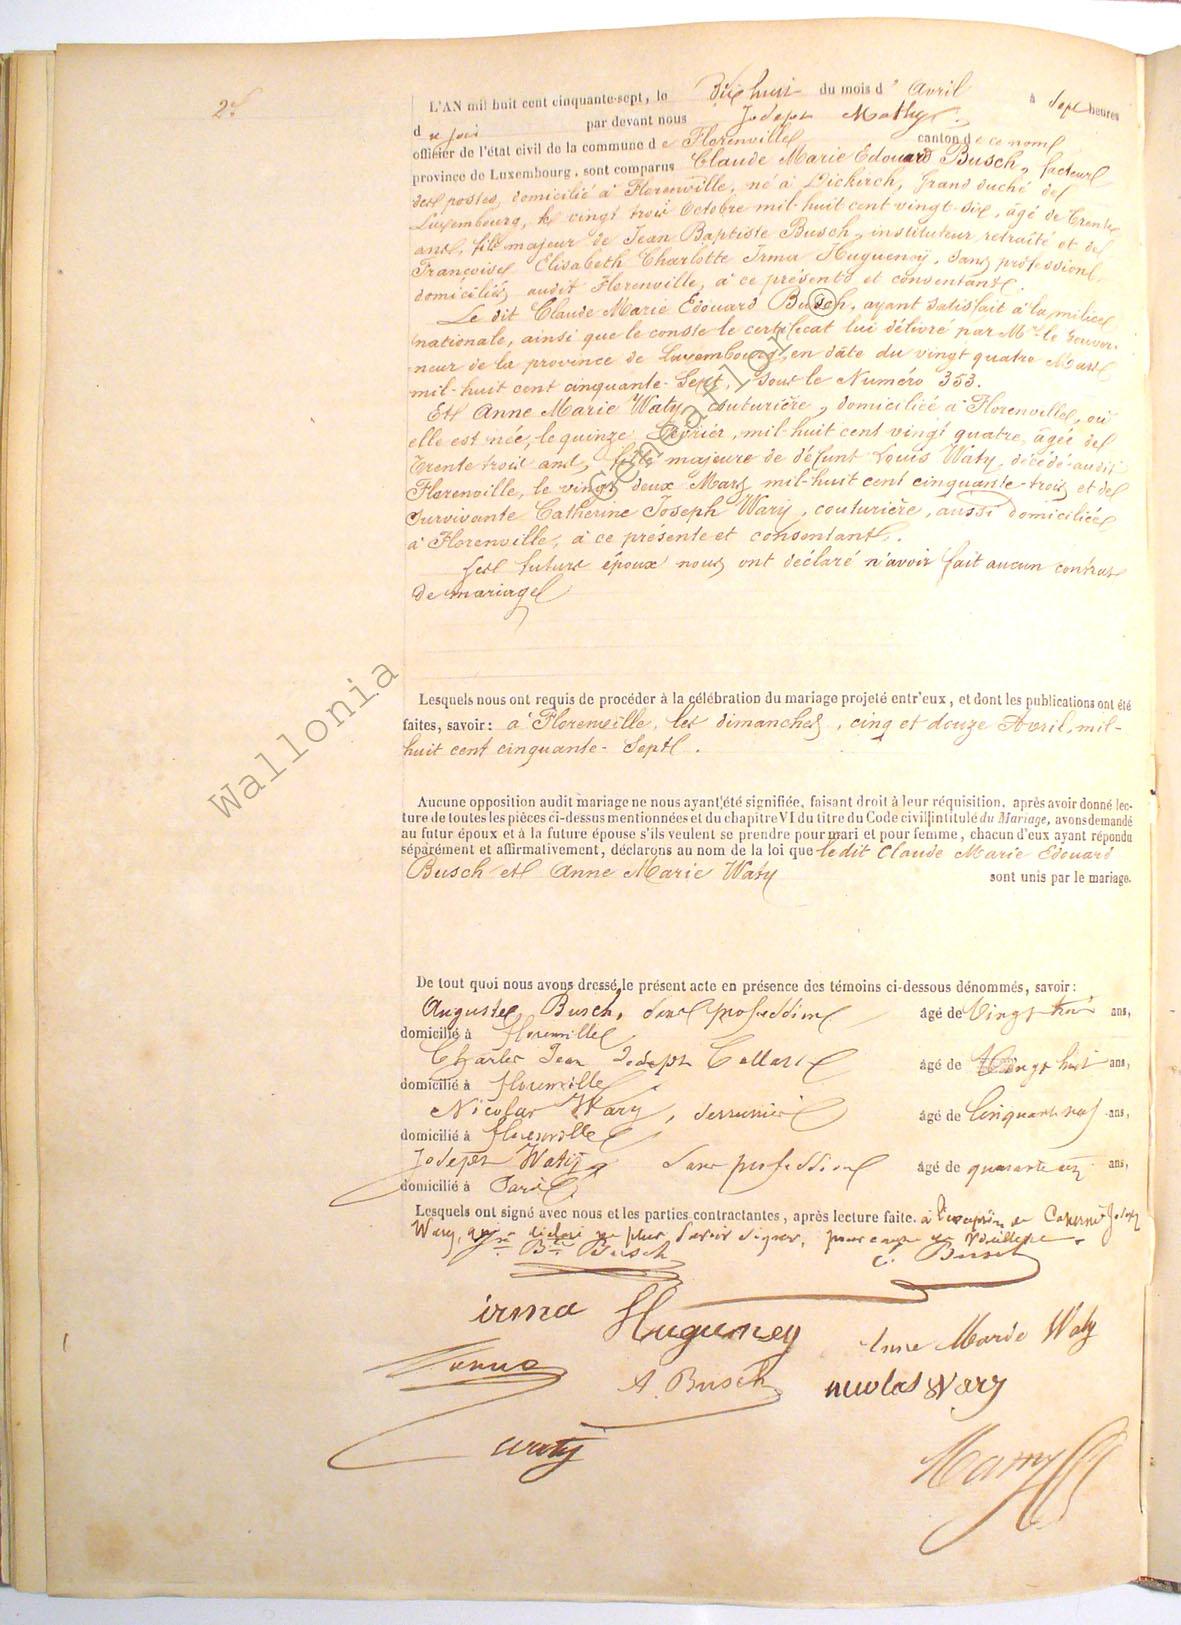 2.
L'AN mil huit cent cinquante-sept, le Dix huit du mois d' Avril à Sept heures
d u soir par devant nous Joseph Mathy
officier de l'état civil de la commune d e Florenville canton d e ce nom
province de Luxembourg, sont comparus Claude Marie Edouard Busch, facteur
des postes, domicilié à Florenville, né à Dickirch, Grand duché de
Luxembourg, le vingt trois Octobre mil-huit cent vingt-six, âgé de Trente
ans, fils majeur de Jean Baptiste Busch, instituteur retraité et de
Françoise Elisabeth Charlotte Irma Huguenoy, sans profession,
domiciliés audit Florenville, à ce présents et consentants.
Le dit Claude Marie Edouard Busch, ayant satisfait à la milice
nationale, ainsi que le conste le certificat lui délivré par Mr. le Gouver-
neur de la province de Luxembourg, en dâte du vingt quatre Mars
mil-huit cent cinquante-Sept, sous le Numéro 353.
Et Anne Marie Waty, couturière, domiciliée à Florenville, où
elle est née, le quinze Février, mil-huit cent vingt quatre, âgée de
Trente trois ans, fille majeure de défunt Louis Waty, décédé audit
Florenville, le vingt deux Mars mil-huit cent cinquante-trois, et de
Survivante Catherine Joseph Wary, couturière, aussi domiciliée
à Florenville, à ce présente et consentant.
Les futurs époux nous ont déclaré n'avoir fait aucun contrat
de mariage
Lesquels nous ont requis de procéder à la célébration du mariage projeté entr'eux, et dont les publications ont été
faites, savoir: à Florenville, les dimanches, cinq et douze Avril, mil-
huit cent cinquante-Sept.
Aucune opposition audit mariage ne nous ayant été signifiée, faisant droit à leur réquisition, après avoir donné lec-
ture de toutes les pièces ci-dessus mentionnées et du chapitre VI du titre du Code civil intitulé du Mariage, avons demandé
au futur époux et à la future épouse s'ils veulent se prendre pour mari et pour femme, chacun d'eux ayant répondu
séparément et affirmativement, déclarons au nom de la loi que le dit Claude Marie Edouard
Busch et Anne Marie Waty sont unis par le mariage.
De tout quoi nous avons dressé le présent acte en présence des témoins ci-dessous dénommés, savoir:
Auguste Busch, sans profession âgé de Vingt trois ans,
domicilié à florenville
Charles Jean Joseph âgé de Vingt huit ans,
domicilié à florenville
Nicolas Wary, serrurier âgé de Cinquante neuf ans,
domicilié à florenville
Joseph Waty sans profession âgé de quarante ans,
domicilié à Paris
Lesquels ont signé avec nous et les parties contractantes, après lecture faite. à l'exception de Catherine Joseph
Wary, qui a déclaré ne plus savoir signer, pour cause de vieillesse.
Jn. Bte. Busch
E. Busch
irma Huguency
Anne Marie Waty
A. Busch
nicolas wary
waty
Mathy
Wallonia Genealor